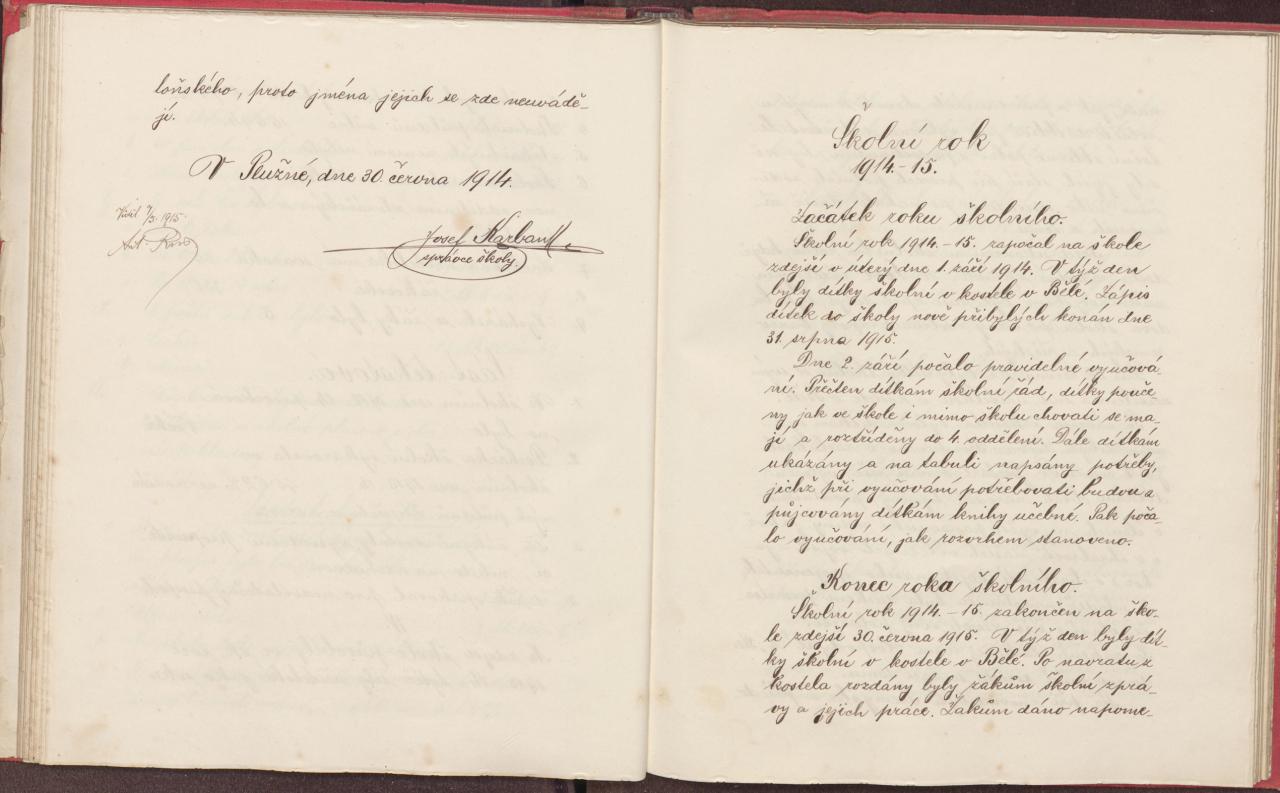 loňského, proto jména jejich se zde neuvádě-
jí.
V Plužné, dne 30. června 1914.
Visit. 7/3. 1915.
Ant.
Josef Karban
správce školy.
Školní rok
1914-15.
Začátek roku školního.
Školní rok 1914-15. započal na škole
zdejší v úterý dne 1. září 1914. V týž den
byly dítky školní v kostele v Bělé. Zápis
dítek do školy nově přibylých konán dne
31. srpna 1915.
Dne 2. září počalo pravidelné vyučová-
ní. Přečten dítkám školní řád, dítky pouče-
ny jak ve škole i mimo školu chovati se ma-
jí a roztříděny do 4. oddělení. Dále dítkám
ukázány a na tabuli napsány potřeby,
jichž při vyučování potřebovati budou a
půjčovány dítkám knihy učebné. Pak poča-
lo vyučování, jak rozvrhem stanoveno.
Konec roka školního.
Školní rok 1914-15. zakončen na ško-
le zdejší 30. června 1915. V týž den byly dít-
ky školní v kostele v Bělé. Po navratu z
kostela rozdány byly žákům školní zprá-
vy a jejich práce. Žákům dáno napome-